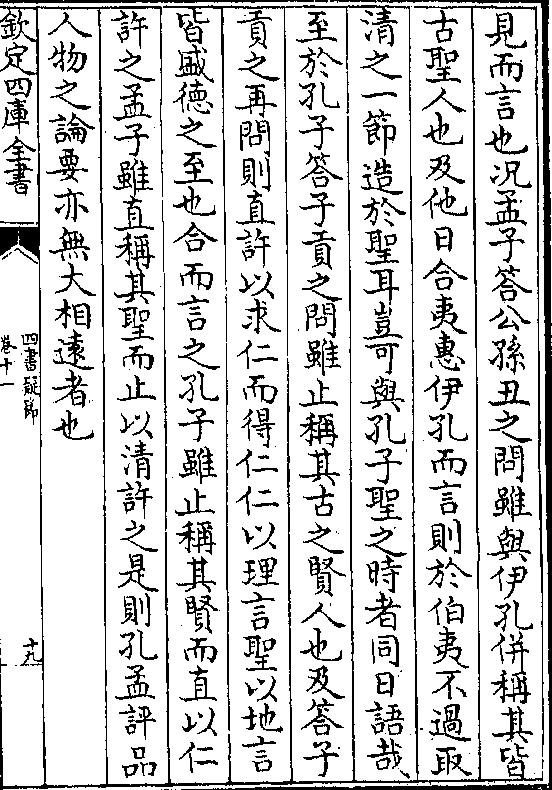 見而言也况孟子答公孫丑之問雖與伊孔併稱其皆
古聖人也及他日合夷惠伊孔而言則於伯夷不過取
清之一節造於聖耳豈可與孔子聖之時者同日語哉
至於孔子答子貢之問雖止稱其古之賢人也及答子
貢之再問則直許以求仁而得仁仁以理言聖以地言
皆盛德之至也合而言之孔子雖止稱其賢而直以仁
許之孟子雖直稱其聖而止以清許之是則孔孟評品
人物之論要亦無大相遠者也
欽定四庫全書
四書疑節
卷十一
十九